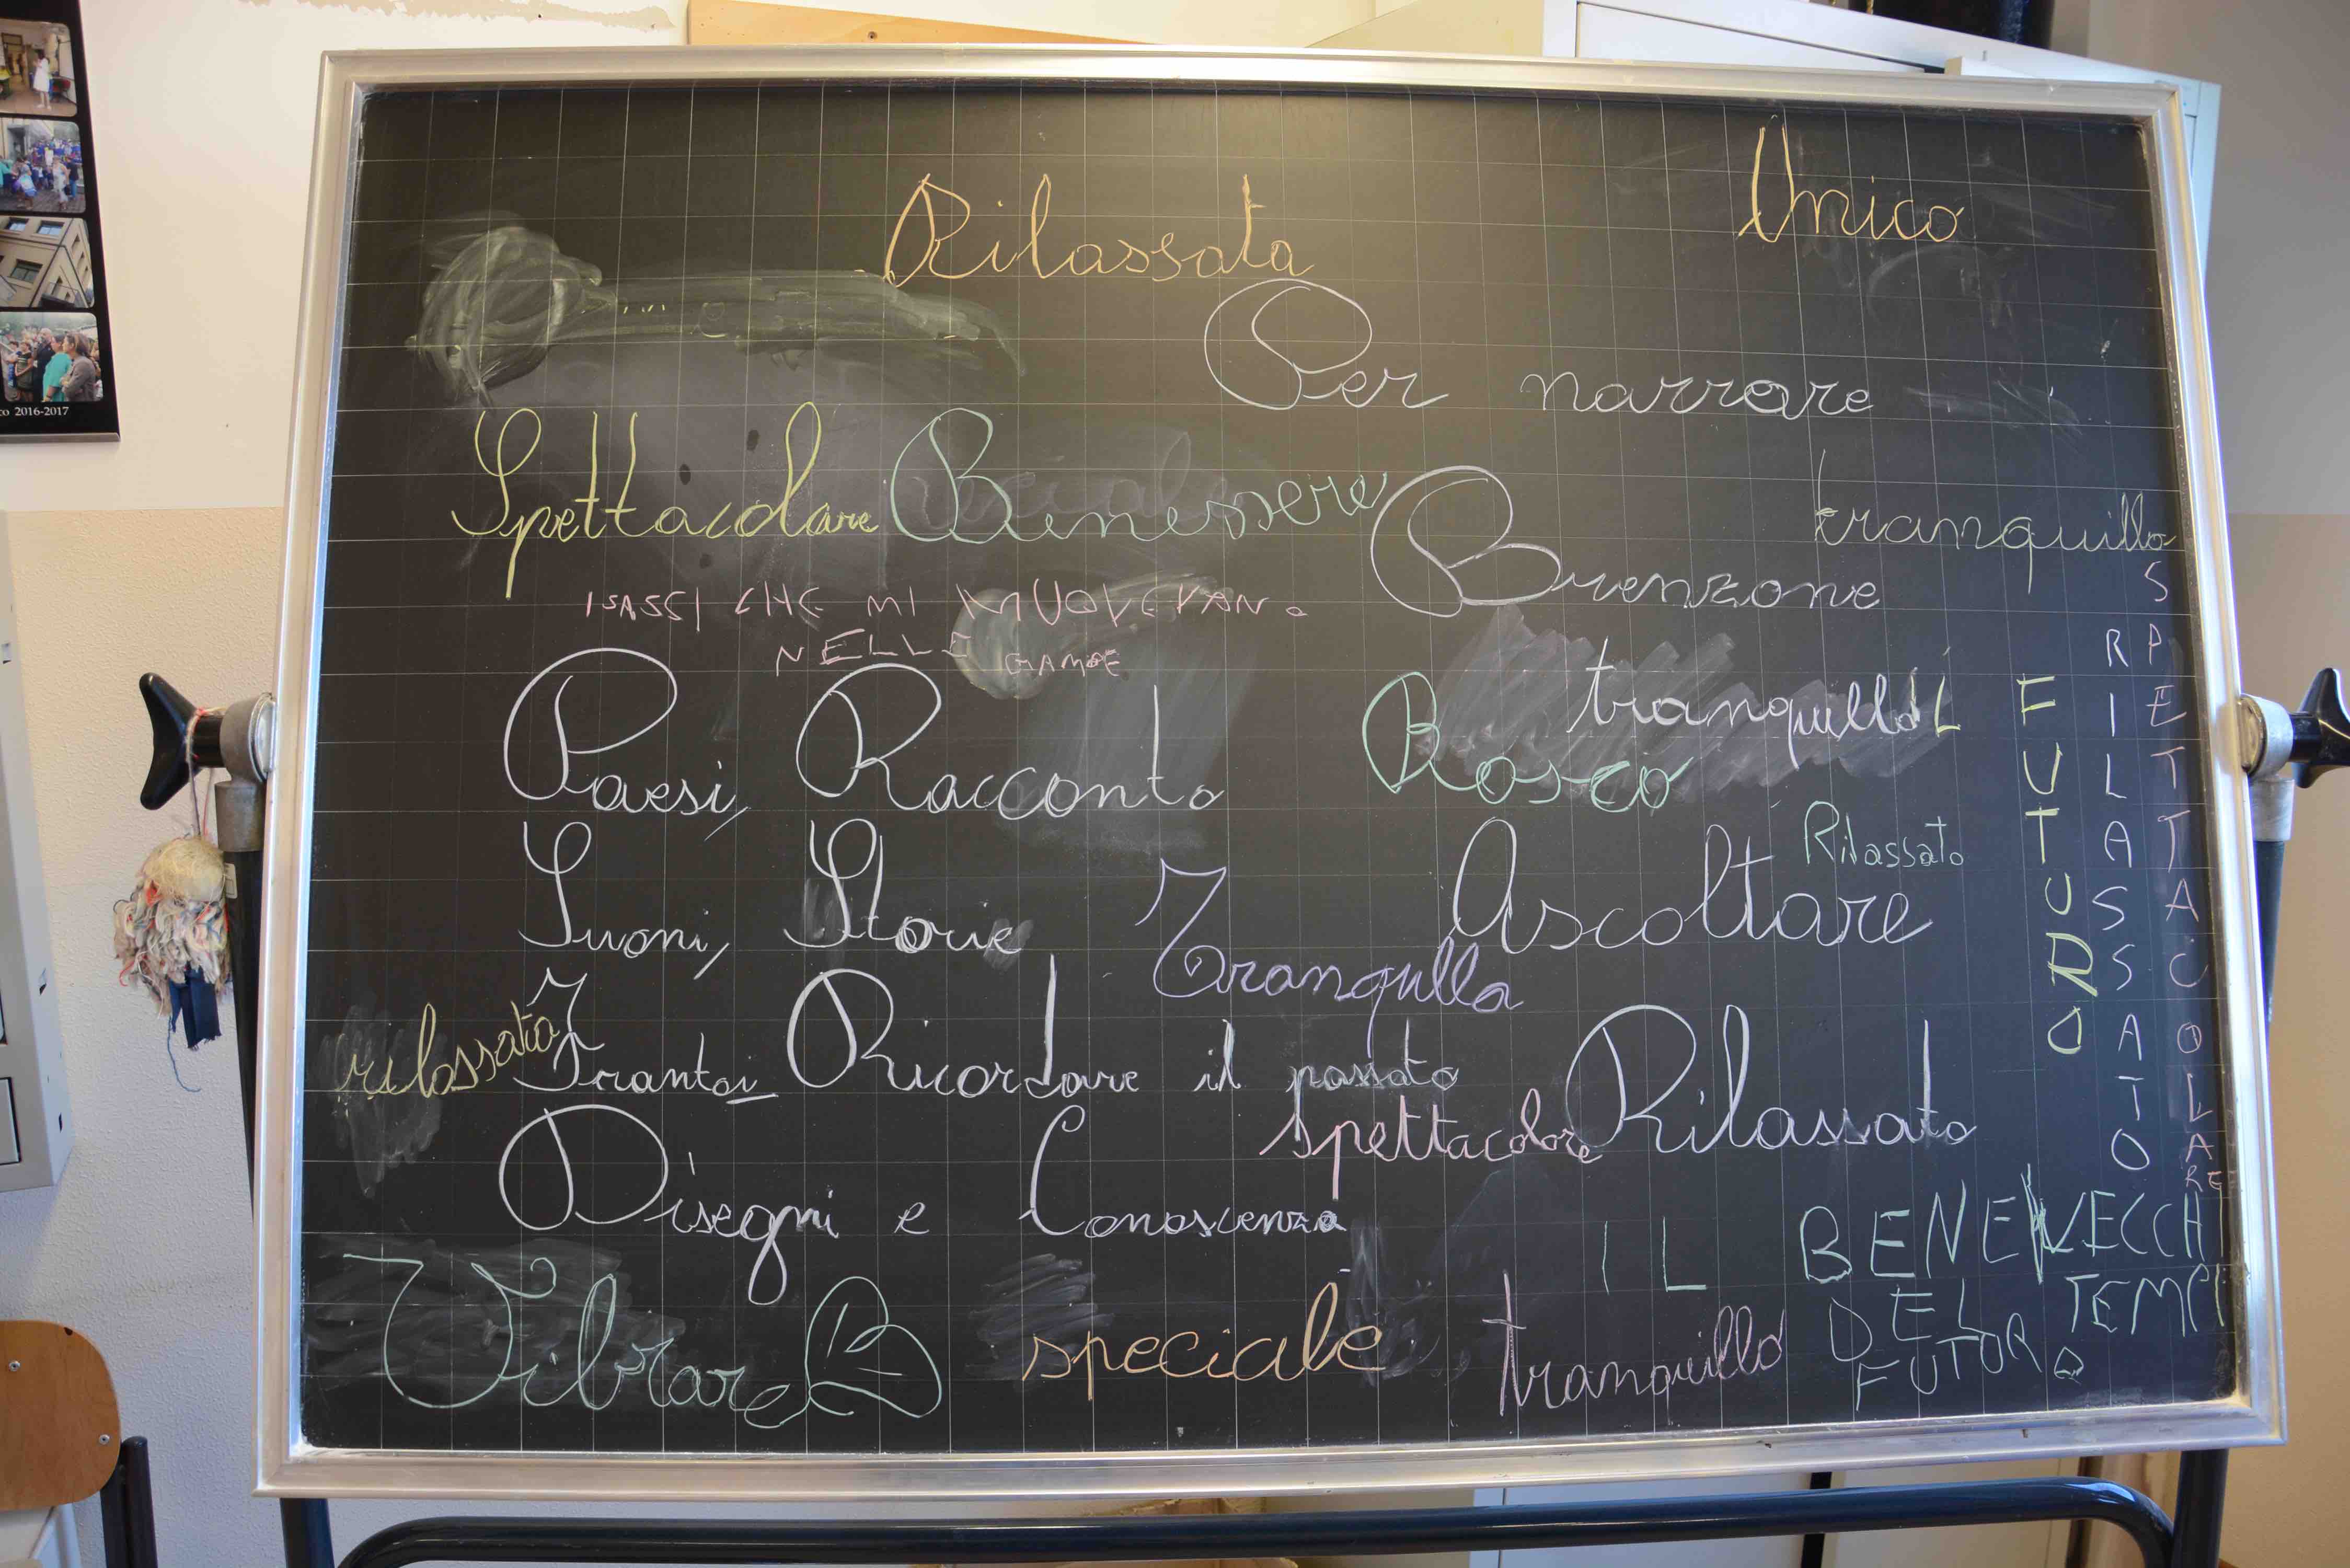 co 2016-2017
Rilassata
Unico
Per narrare
Spettacolare Benessere
tranquillo
Brenzone
I SASSI CHE MI MUOVEVANO
NELLE GAMBE
tranquillo
Paesi, Racconto
Bosco
Rilassato
Suoni, Storie
Ascoltare
Tranqulla
rilassata
Ricordare il passato
spettacolare
Rilassato
Disegni e Conoscenza
FUTURO
RILASSATO
SPETTACOLARE
IL BENE
DEL
FUTORO
VECCHI
TEMPI
Vibrare
speciale
tranquillo